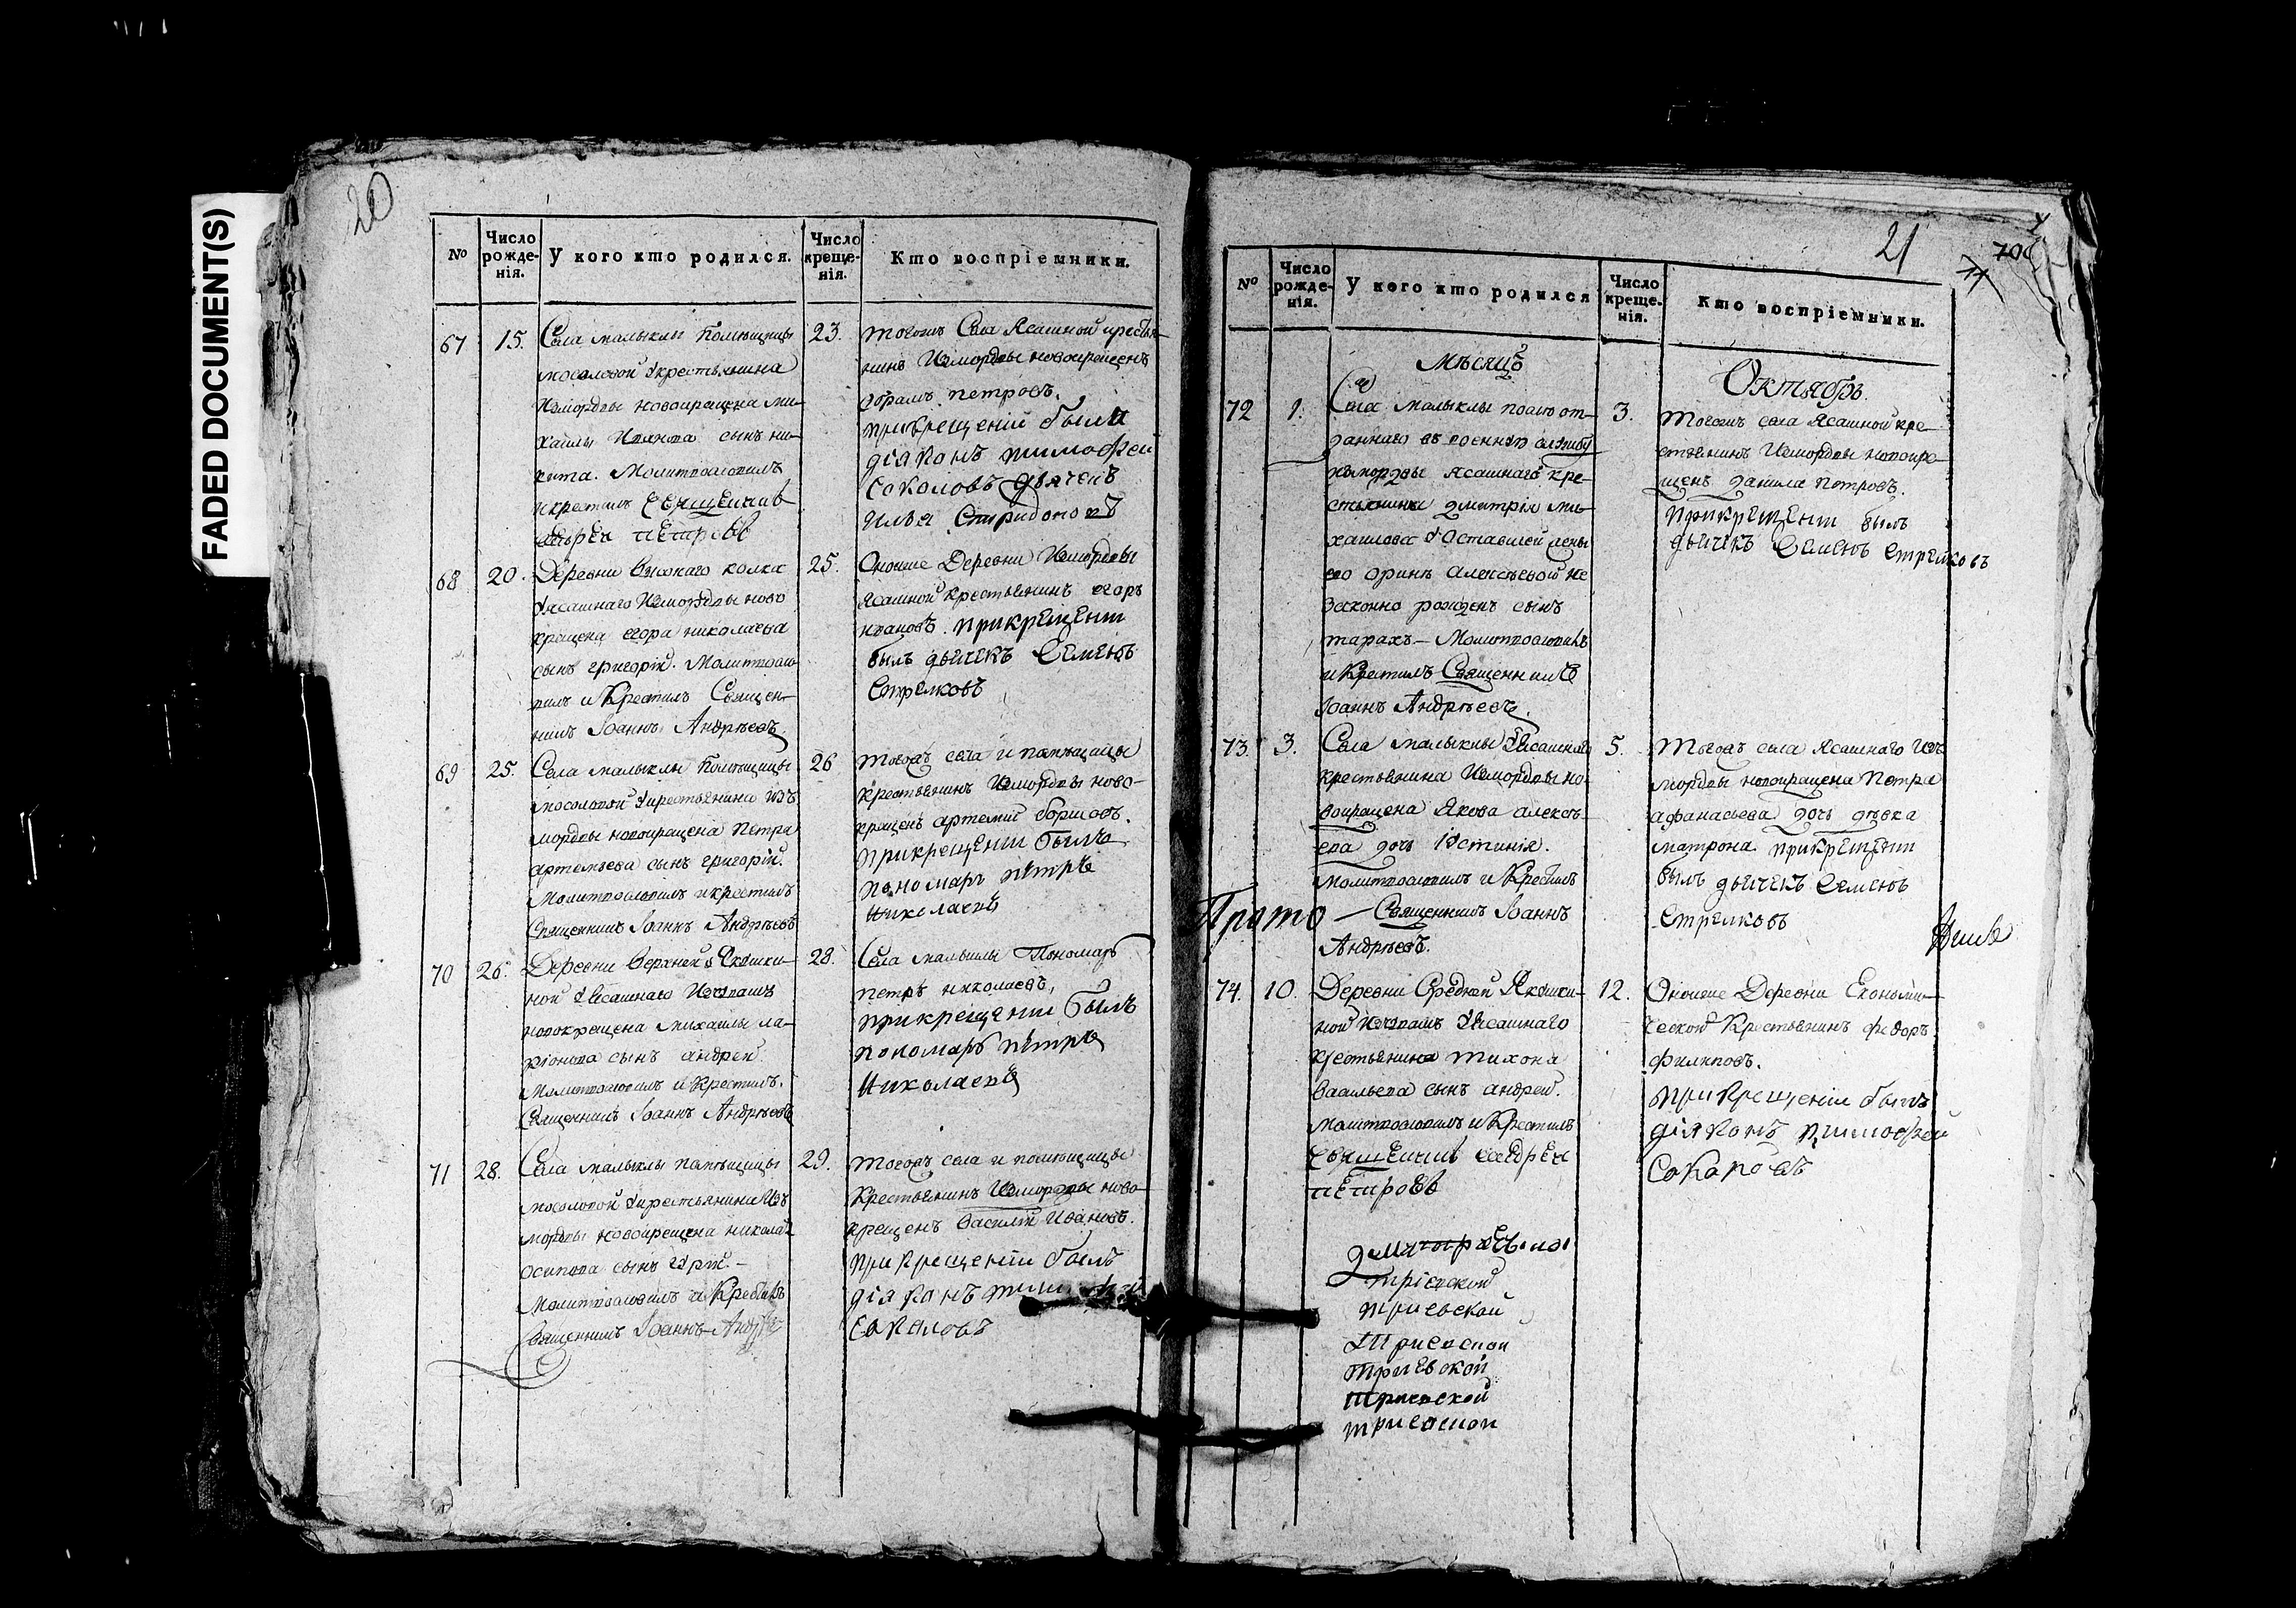 FADED DOCUMENT(S)
20
№
Число рожде-нія.
У кого кто родился.
Число креще-нія.
Кто воспріемники.
67
15.
Села малыклы Помѣщицы
мосоловой Укрестьянина
Измордвы новокращена ми-
хаилы Иванова сынъ ни-
кита. Молитвословилъ
икрестилъ Священник
андреи петровъ
23.
тогожъ Села Ясашной крестья-
нинъ Измордвы новокрещенъ
абрамъ петровъ.
прикрещеніи были
діяконъ тимофеи
Соколовъ дьячекъ
илья Спиридоновъ
68
20.
Деревни Высокаго колка
Уясашнаго Измордвы ново
кращена егора николаева
сынъ григорій. Молитвосло
вилъ и Крестилъ Священ-
никъ Іоаннъ Андрѣевъ
25.
Оноиже Деревни Измордвы
Ясашной крестьянинъ егоръ
ивановъ. прикрещении
былъ дьячекъ Семенъ
Стрелковъ
69
25.
Села малыклы Помѣщицы
мосоловой Укрестьянина изъ
мордвы новокращена Петра
артемьева сынъ григорій.
Молитвословилъ икрестилъ
Священникъ Іоаннъ Андрѣевъ
26
тогожъ села и помѣщицы
крестьянинъ Измордвы ново-
кращенъ артемий борисовъ.
прикрещении былъ
пономарь петръ
николаевъ
70
26.
Деревни Верхней Якушки-
ной Уясашнаго Изчувашъ
новокращена михаилы ла-
ріонова сынъ андреи
Молитвословилъ и Крестилъ.
Священникъ Іоаннъ Андрѣевъ
28.
Села малыклы Пономарь
петръ николаевъ,
прикрещении былъ
пономарь петръ
николаевъ
71
28.
Села малыклы памѣщицы
мосоловой Укрестьянина Изъ
мордвы новокрещена николая
осипова сынъ юрій.-
Молитвословилъ и Крестилъ
Священникъ Іоаннъ Андрѣевъ
29.
тогожъ села и помѣщицы
Крестьянинъ Измордвы ново-
крещенъ Василій Ивановъ.
прикрещеніи былъ
діяконъ тимофеи
Соколовъ
21
№
Число рожде-нія.
У кого кто родился
Число креще-нія.
Кто воспріемники.
Мѣсяцъ
Октябрь.
72
1.
Села Малыклы послѣ от-
даннаго въ военную службу
измордвы Ясашнаго кре-
стьянина дмитрія ми-
хаилова Уоставшей жены
его орины Алексѣевой не
Законно рожденъ сынъ
тарахъ- Молитвословилъ
и Крестилъ Священникъ
Іоаннъ Андрѣевъ.
3.
тогожъ села Ясашной кре-
стьянинъ Измордвы новокре-
щенъ данила петровъ.
прикрещении былъ
дьячекъ Семенъ Стрелковъ
73
3.
Села малыклы Уясашнаго
крестьянина Измордвы но-
вокращена Якова алексѣ-
ева дочь Устинія.
Молитвословилъ и Крестилъ
Прото - Священникъ Іоаннъ
Андрѣевъ.
5.
тогожъ села Ясашнаго Изъ
мордвы новокращена Петра
афанасьева дочь дѣвка
матрона прикрещении
былъ дьячекъ Семенъ
Стрелковъ
74.
10.
Деревни Средней Якушки-
ной Изчувашъ Уясашнаго
крестьянина тихона
Васильева сынъ андреи.
Молитвословилъ и Крестилъ
Священникъ андреи
петровъ
12.
Оноиже Деревни Економи-
ческой Крестьянинъ федоръ
филиповъ.
прикрещеніи былъ
діяконъ тимофеи
Соколовъ
тріевской
триевской
триевской
триевской
триевской
триевской